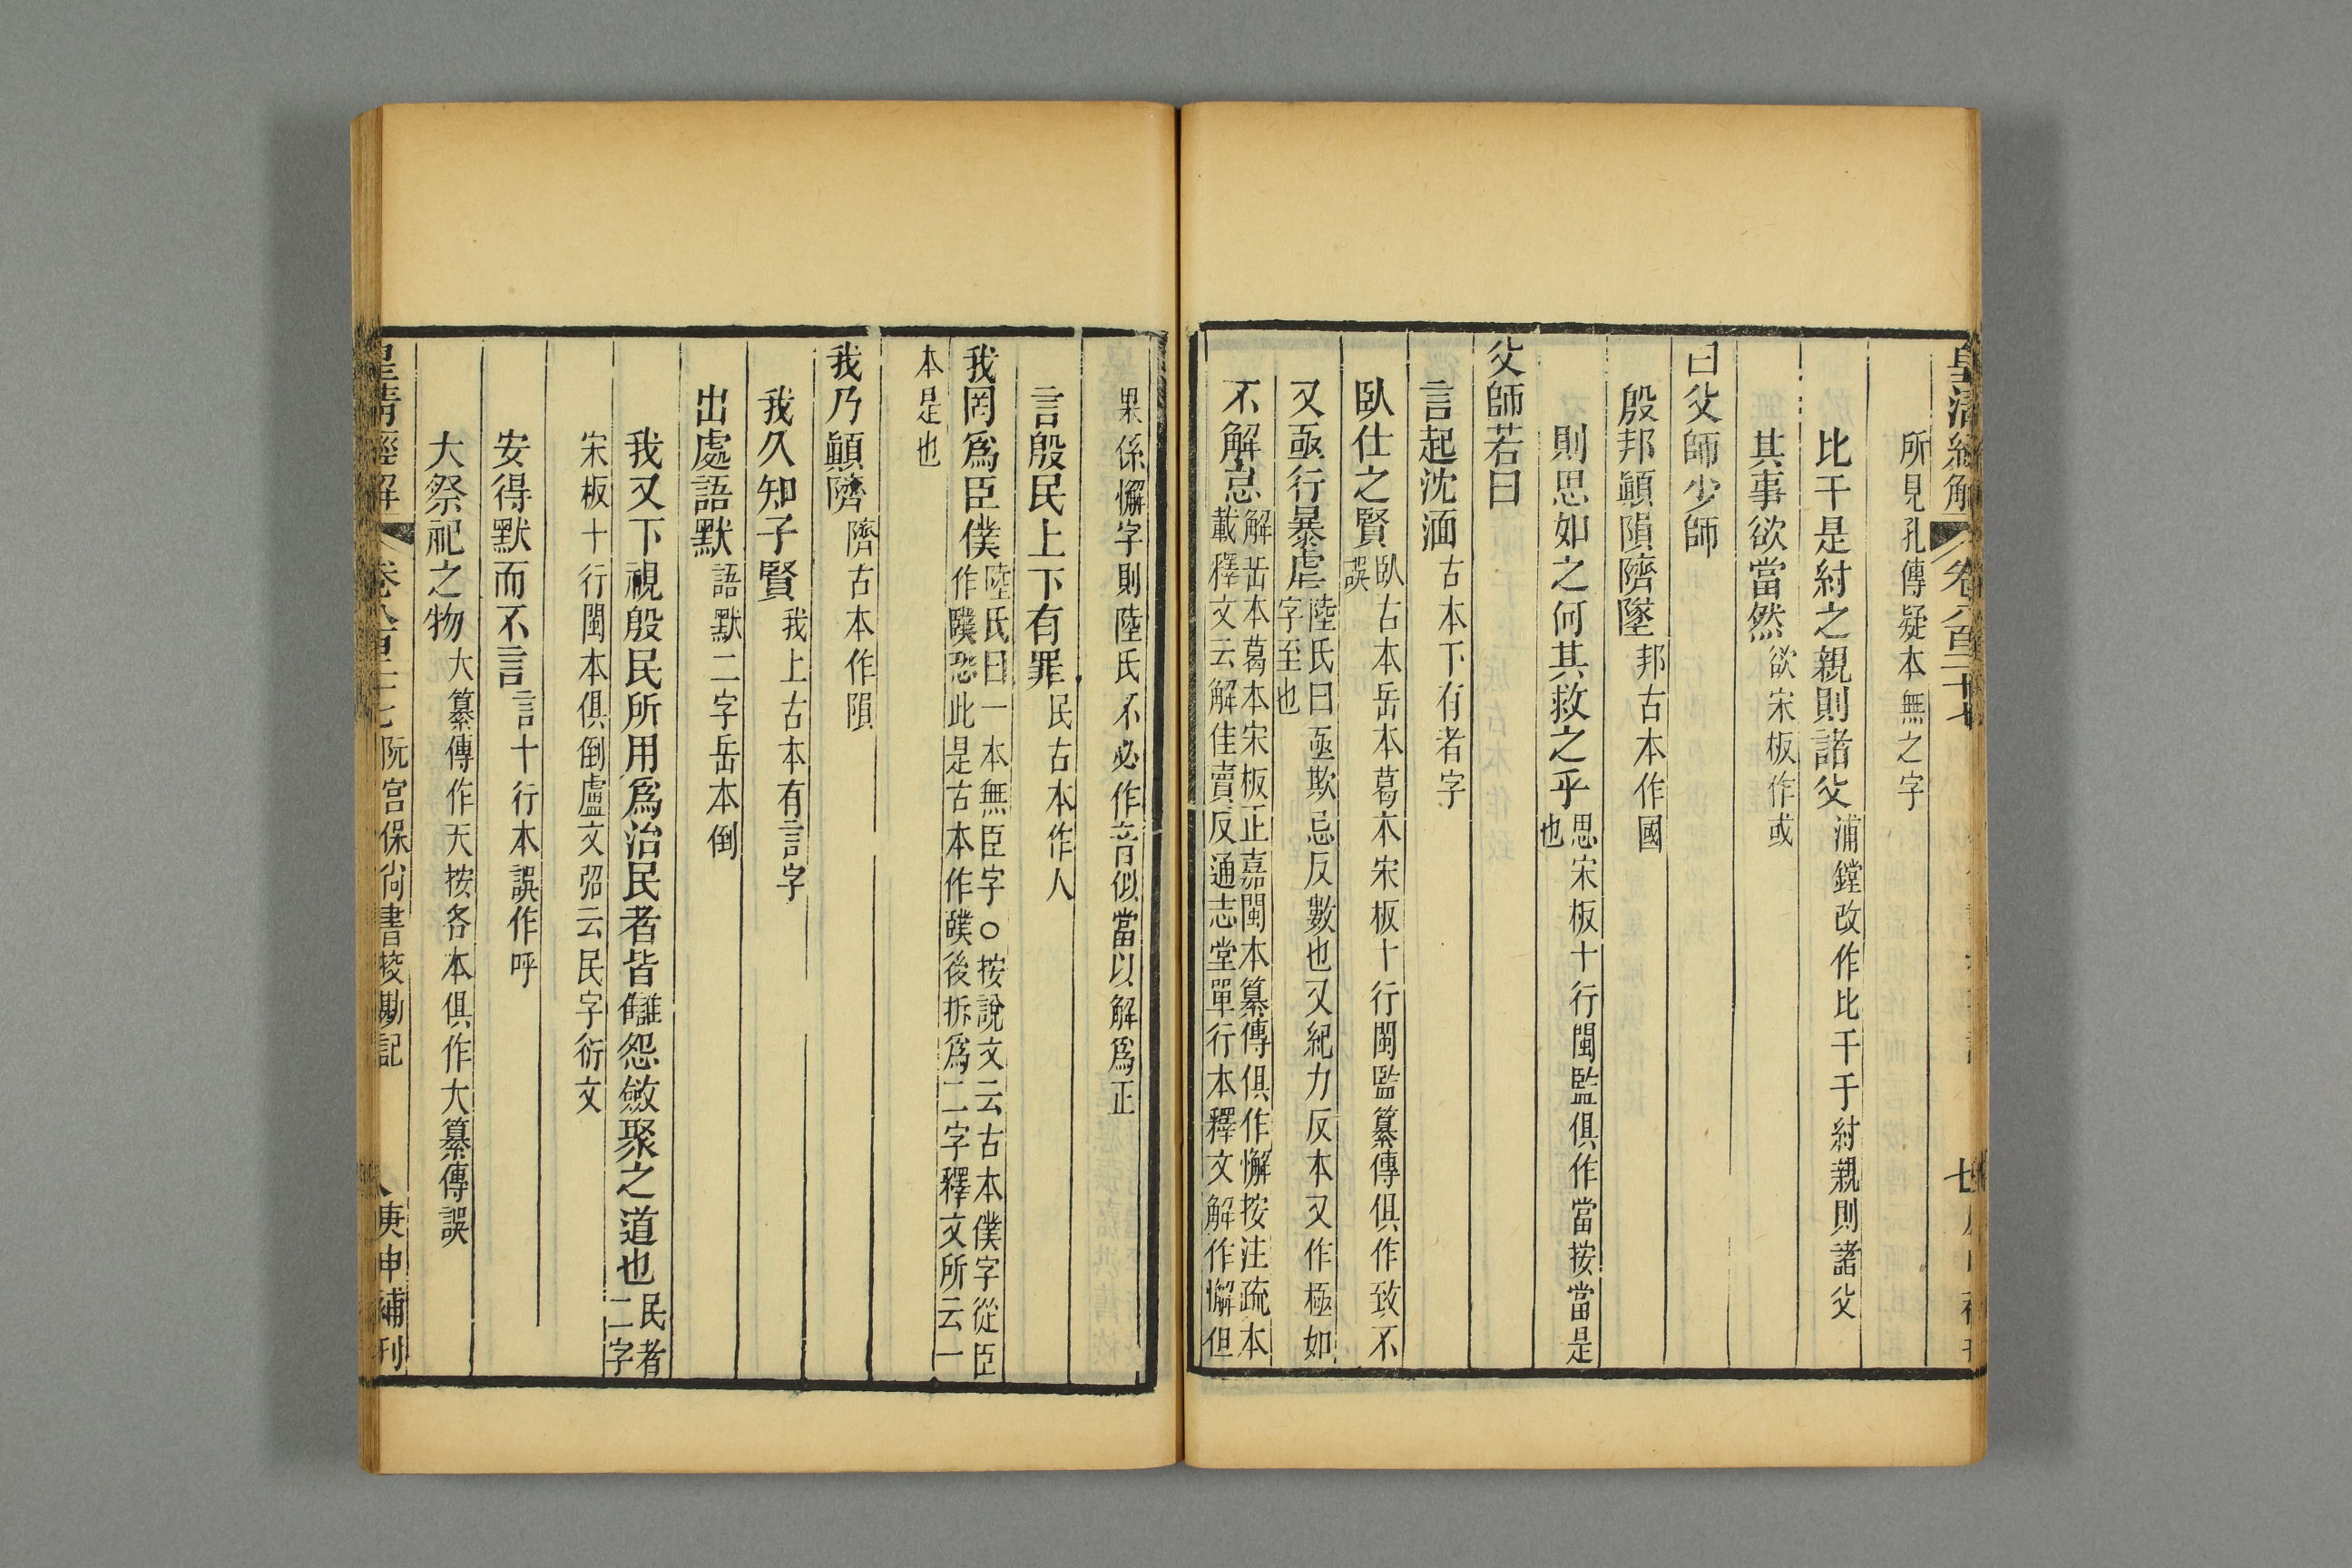 皇清經解 卷八百二十七
所見孔傳疑本無之字
比干是紂之親則諸父浦鏜改作比干于紂親則諸父
其事欲當然欲宋板作或
曰父師少師
殷邦顚隕隮墜邦古本作國
則思如之何其救之乎思宋板十行閩監俱作當按當是也
父師若曰
言起沈湎古本下有者字
臥仕之賢臥古本岳本葛本宋板十行閩監纂傳俱作致不誤
又亟行暴虐陸氏曰亟欺忌反數也又紀力反本又作極如字至也
不解怠解岳本葛本宋板正嘉閩本纂傳俱作懈按注疏本載釋文云解佳賣反通志堂單行本釋文解作懈但
果係懈字則陸氏不必作音似當以解爲正
言殷民上下有罪民古本作人
我罔爲臣僕陸氏曰一本無臣字○按說文云古本僕字從臣作䑑恐此是古本作䑑後拆爲二字釋文所云一
本是也
我乃顚隮隮古本作隕
我久知子賢我上古本有言字
出處語默語默二字岳本倒
我又下視殷民所用爲治民者皆讎怨斂聚之道也民者二字
宋板十行閩本俱倒盧文弨云民字衍文
安得默而不言言十行本誤作呼
大祭祀之物大纂傳作天按各本俱作大纂傳誤
皇清經解 卷八百二十七 阮宮保尙書校勘記 庚申補刊